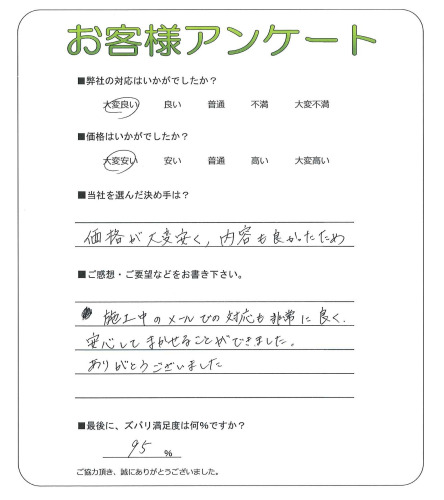 お客様アンケート
■弊社の対応はいかがでしたか？
大変良い 良い 普通 不満 大変不満
■価格はいかがでしたか？
大変安い 安い 普通 高い 大変高い
■当社を選んだ決め手は？
価格が大変安く、内容も良かったため
■ご感想・ご要望などをお書き下さい。
施工中のメールでの対応も非常に良く、
安心してまかせることができました。
ありがとうございました
■最後に、ズバリ満足度は何％ですか？
95 ％
ご協力頂き、誠にありがとうございました。